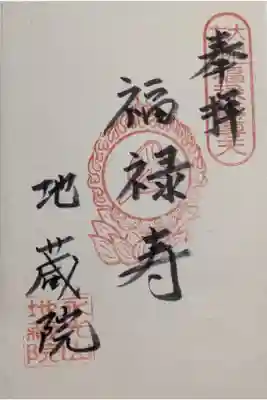 奉拝
福禄寿
地蔵院